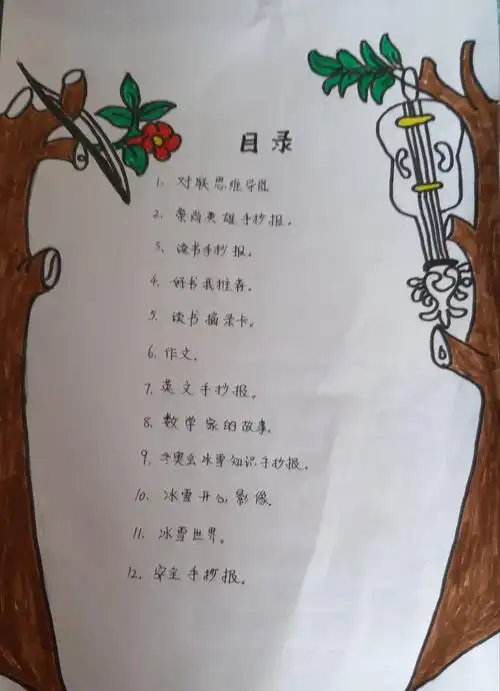 目录
1. 对联思维导图
2. 崇尚英雄手抄报。
3. 读书手抄报。
4. 好书我推荐。
5. 读书摘录卡。
6. 作文。
7. 英文手抄报。
8. 数学家的故事。
9. 冬奥会冰雪知识手抄报。
10. 冰雪开心影像。
11. 冰雪世界。
12. 安全手抄报。